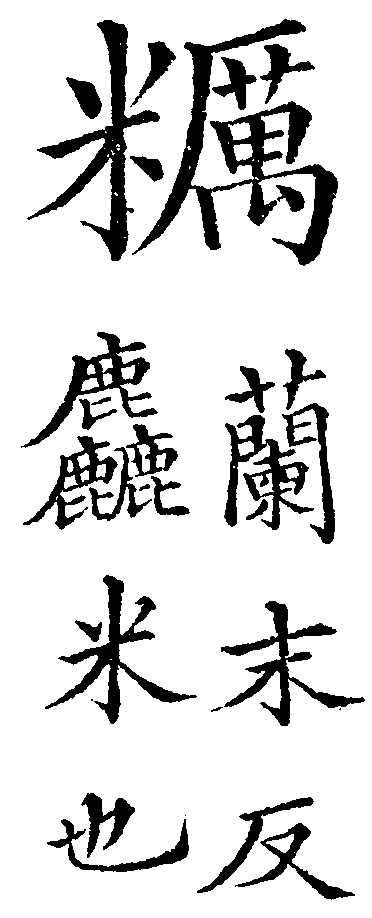 糲
蘭末反
麤米也